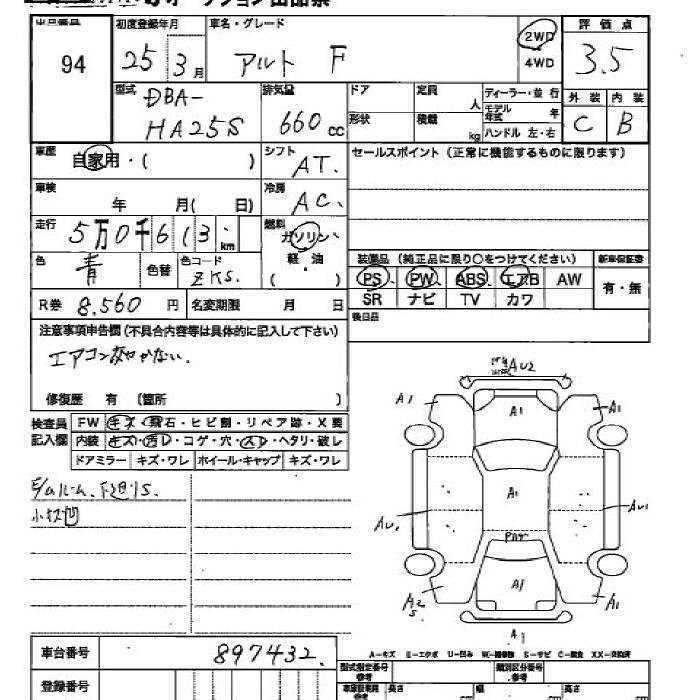 94
初度登録年月
25 3月
車名・グレード
アルト F
2WD
4WD
評価点
3.5
外装 内装
C B
型式
DBA-
HA25S
排気量
660 cc
ドア
形状
定員 人
積載 kg
ディーラー・並行
モデル年式 年
ハンドル 左・右
車歴
自家用・( )
シフト
AT.
セールスポイント(正常に機能するものに限ります)
車検
年 月( 日)
冷房
AC、
走行
5万0千613 km
燃料
ガソリン・
軽・油
( )
色
青
色替
色コード
ZKS.
装備品(純正品に限り○をつけてください)
新車保証書
PS PW ABS エアB AW
SR ナビ TV カワ
有・無
R券 8.560 円
名変期限 月 日
後日品
注意事項申告欄(不具合内容等は具体的に記入して下さい)
修復歴 有 (箇所 )
検査員
記入欄
FW キズ・飛石・ヒビ割・リペア跡・X要
内装 キズ・汚レ・コゲ・穴・スレ・ヘタリ・破レ
ドアミラー キズ・ワレ ホイール・キャップ キズ・ワレ
AU2
A1
A1
A1
A1
AU1
AU1
A1
A2
S
A1
A1
A-キズ E-エクボ U-凹み W-補修跡 S-サビ C-腐食 XX-交換済
車台番号
897432.
登録番号
型式指定番号
類別区分番号
長さ cm 幅 cm 高さ cm